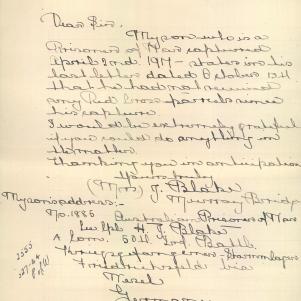 Dear Sir.
My son who is a
Prisoner of War captured
April 2nd 1917 - states in his
last letter dated October 13th
that he had not received
any Red Cross parcels since
his capture.
I would be extremely grateful
if you could do anything in
the matter.
Thanking you in anticipation
Yours truly
(Mrs) J. Blake
Murray Bridge
My son's address:-
No. 1886
Australian Prisoner of War
L/Cpl. H. J. Blake
A Comp. 50th Inf. Battn.
Kriegsgefangenen - Stammlager
Friedrichsfeld bei
Wesel
Germany